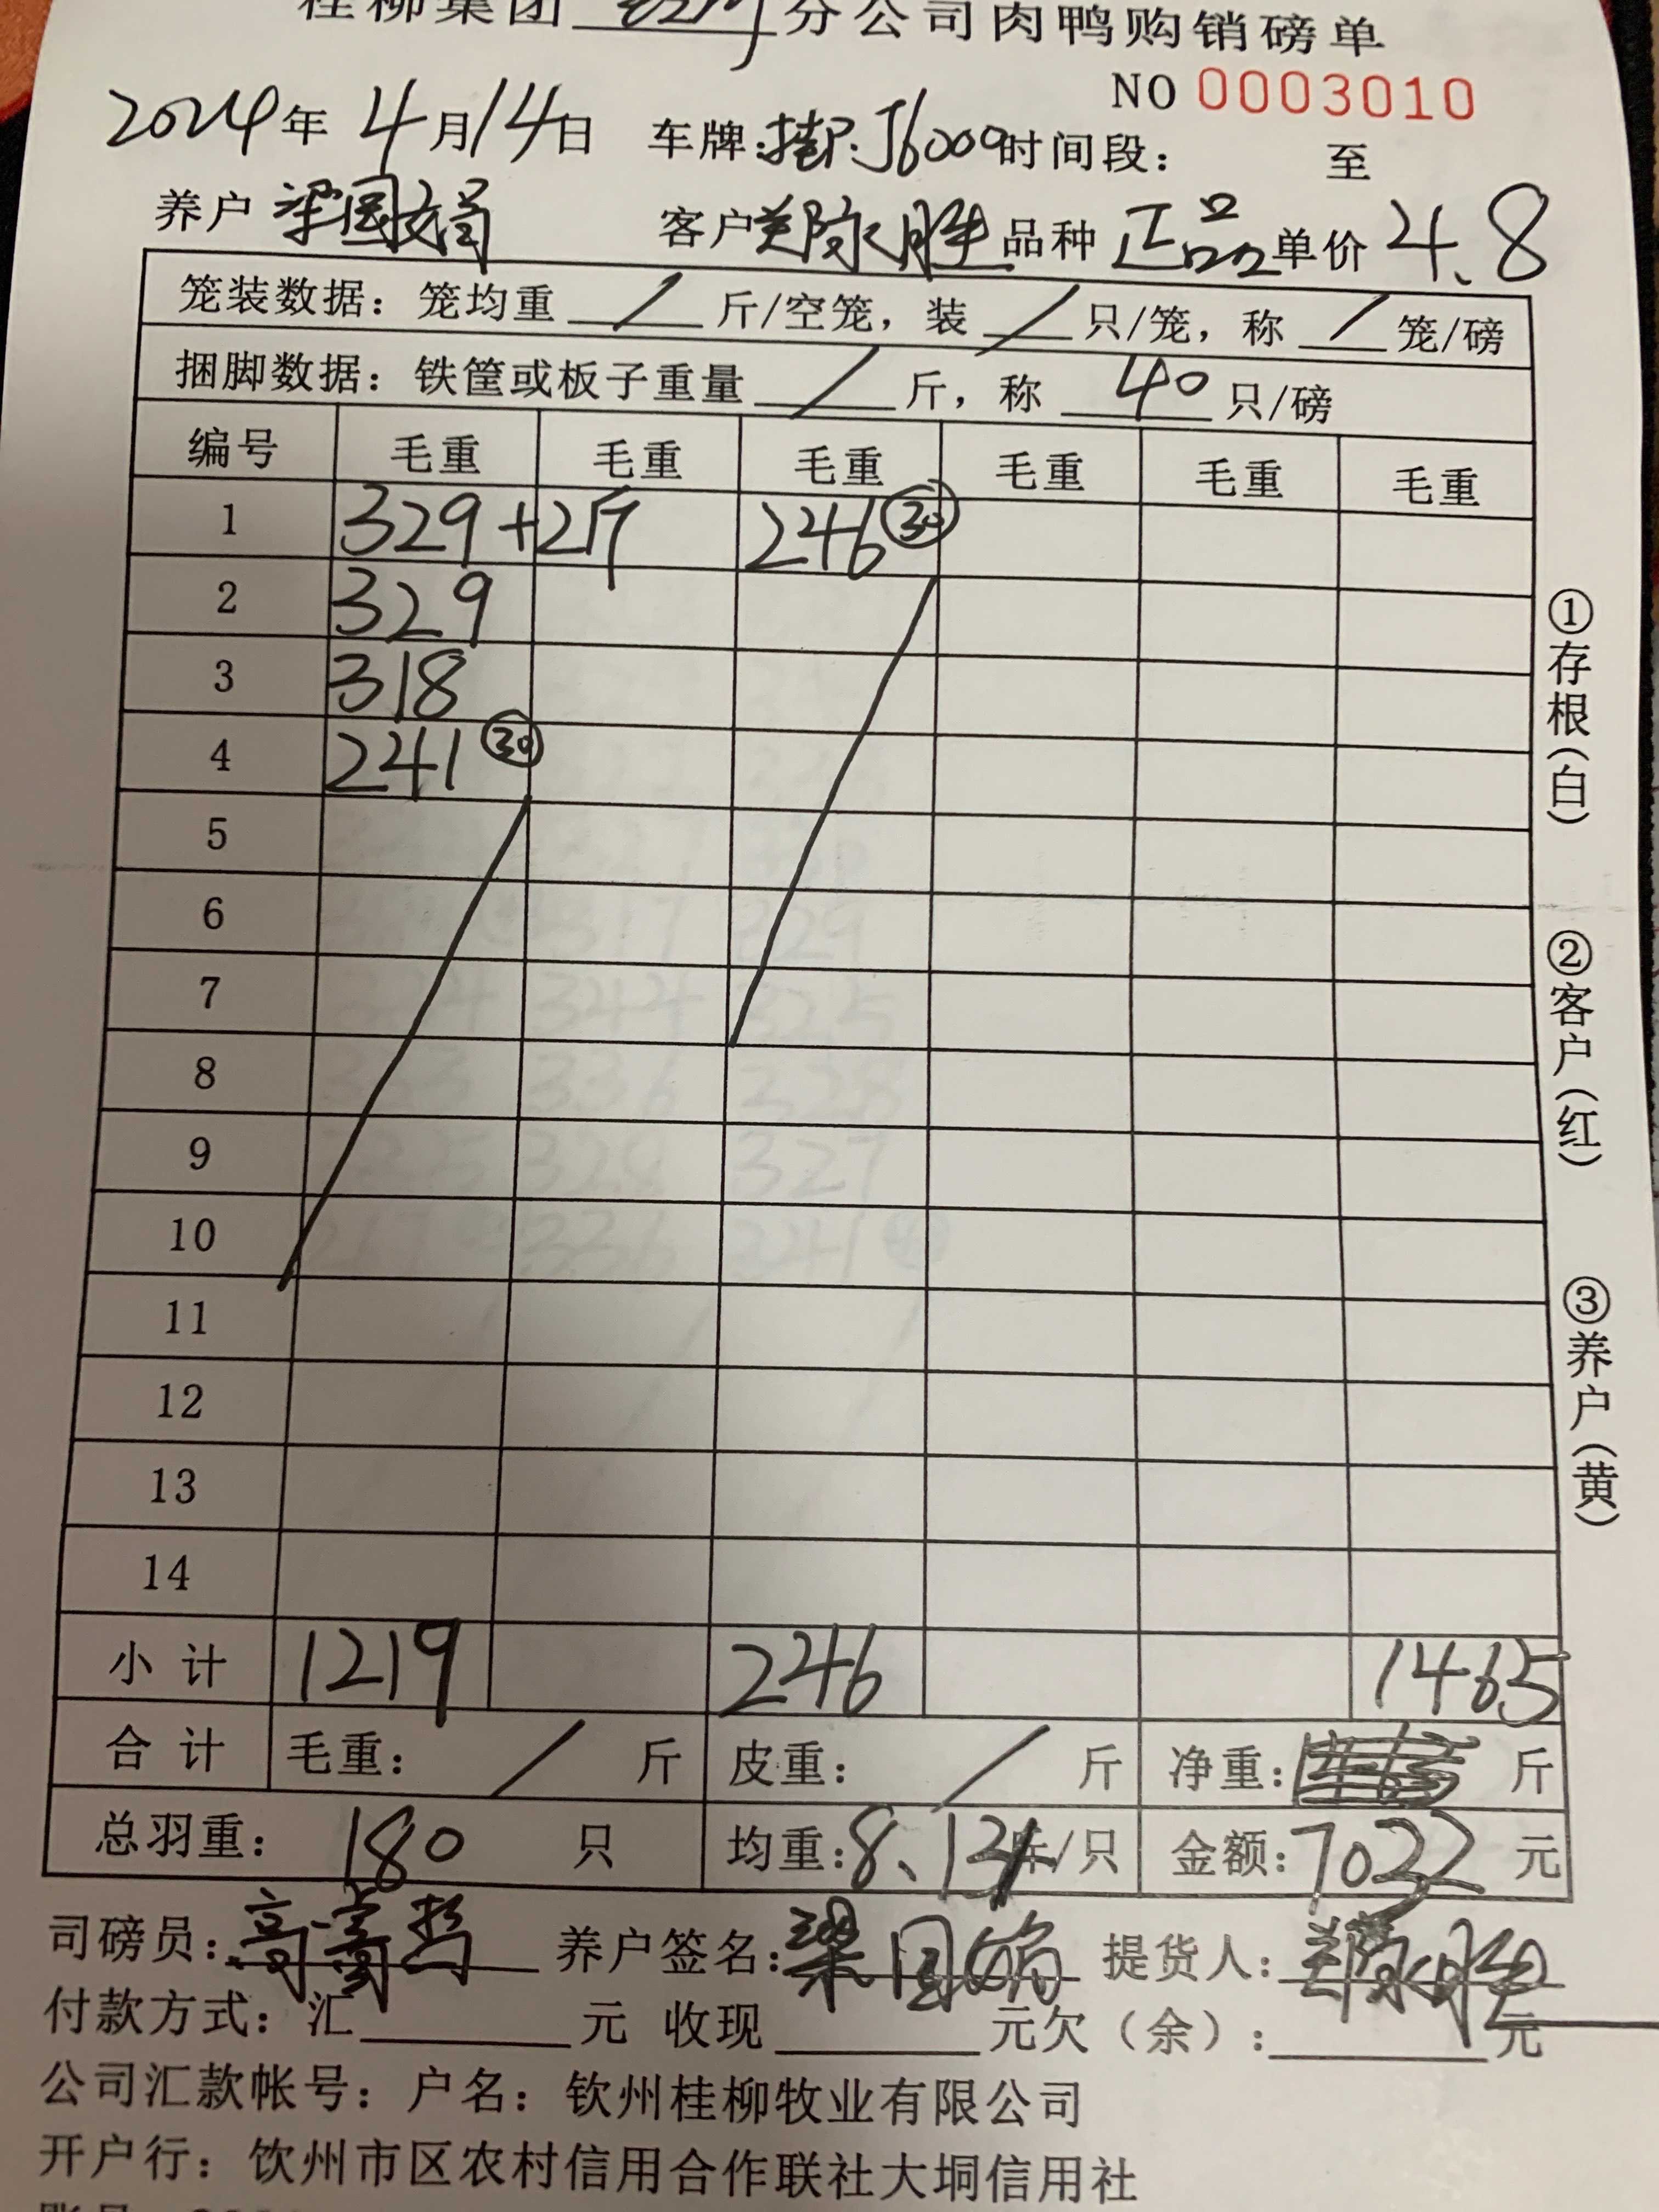 桂柳集团 分公司肉鸭购销磅单
NO 0003010
2024年 4月14日 车牌: J6009 时间段: 至
养户 梁国娟 客户 郑家胜 品种 正品 单价 4.8
笼装数据:笼均重 / 斤/空笼,装 / 只/笼,称 / 笼/磅
捆脚数据:铁筐或板子重量 / 斤,称 40 只/磅
编号 毛重 毛重 毛重 毛重 毛重 毛重
1 329+2斤 246 ㉚
2 329
3 318
4 241 ㉚
5
6
7
8
9
10
11
12
13
14
小计 1219 246 1465
合计 毛重: / 斤 皮重: / 斤 净重: 斤
总羽重: 180 只 均重:8.13斤/只 金额:7032 元
司磅员: 养户签名:梁国娟 提货人:郑家胜
付款方式:汇 元 收现 元欠(余): 元
公司汇款帐号:户名:钦州桂柳牧业有限公司
开户行:钦州市区农村信用合作联社大垌信用社
①存根(白)
②客户(红)
③养户(黄)